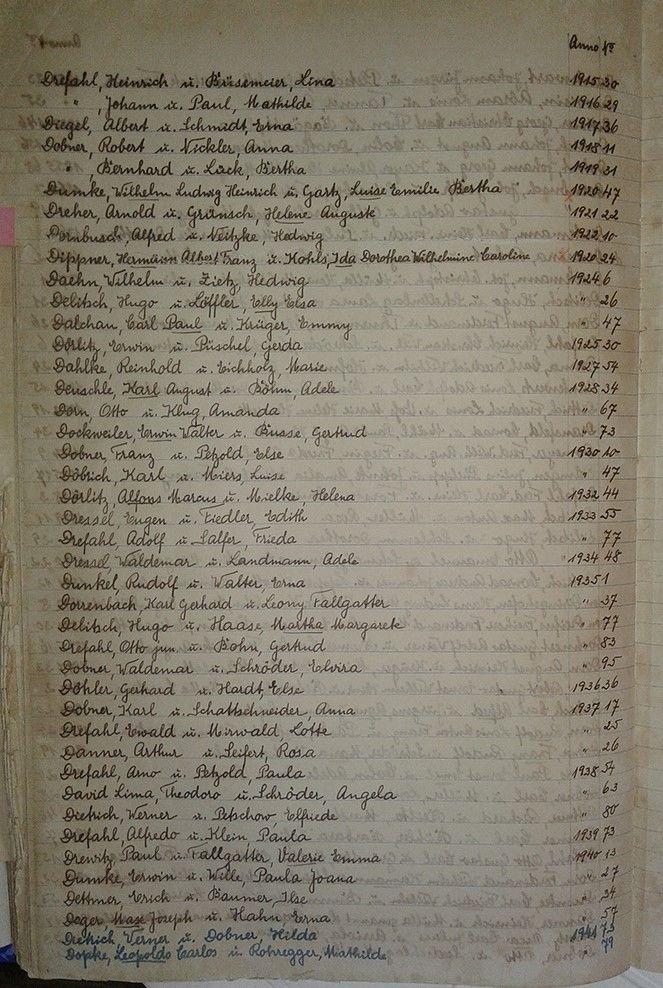 Anno No
Drefahl, Heinrich u. Büsemeier, Lina 1915 30
" , Johann u. Paul, Mathilde 1916 29
Diegel, Albert u. Schmidt, Erna 1917 36
Dobner, Robert u. Nickler, Anna 1918 11
" , Bernhard u. Lück, Bertha 1919 31
Dumke, Wilhelm Ludwig Heinrich u. Gartz, Luise Emilie Bertha 1920 47
Dreher, Arnold u. Grünsch, Helene Auguste 1921 22
Dornbusch, Alfred u. Neitzke, Hedwig 1922 10
Dippner, Hermann Albert Franz u. Kohls, Ida Dorothea Wilhelmine Caroline 1920 24
Daehn, Wilhelm u. Zietz, Hedwig 1924 6
Delitsch, Hugo u. Löffler, Elly Elsa " 26
Dalchau, Carl Paul u. Krüger, Emmy " 47
Dörlitz, Erwin u. Püschel, Gerda 1925 30
Dahlke, Reinhold u. Eichholz, Marie 1927 54
Deuschle, Karl August u. Böhm, Adele 1928 34
Dorn, Otto u. Klug, Amanda " 67
Dockweiler, Erwin Walter u. Busse, Gertrud " 73
Dobner, Franz u. Petzold, Else 1930 10
Döbrich, Karl u. Miers, Luise " 47
Dörlitz, Alfons Marcus u. Mielke, Helena 1932 44
Dressel, Eugen u. Fiedler, Edith 1933 55
Drefahl, Adolf u. Salfer, Frieda " 77
Dressel, Waldemar u. Landmann, Adele 1934 48
Dunkel, Rudolf u. Walter, Erna 1935 1
Dorrenbach, Karl Gerhard u. Leony Fallgatter " 37
Delitsch, Hugo u. Haase, Martha Margarete " 77
Drefahl, Otto jun. u. Bohn, Gertrud " 83
Dobner, Waldemar u. Schröder, Elvira " 95
Döhler, Gerhard u. Hardt, Else 1936 36
Dobner, Karl u. Schattschneider, Anna 1937 17
Drefahl, Ewald u. Mirwald, Lotte " 25
Danner, Arthur u. Seifert, Rosa " 26
Drefahl, Arno u. Petzold, Paula 1938 54
David Lima, Theodoro u. Schröder, Angela " 63
Dietrich, Werner u. Petschow, Elfriede " 80
Drefahl, Alfredo u. Klein, Paula 1939 73
Drewitz, Paul u. Fallgatter, Valerie Emma 1940 13
Dumke, Erwin u. Wille, Paula Joana " 27
Dettmer, Erich u. Baumer, Ilse " 34
Deger Joseph u. Hahn Erna " 57
Dietrich Verner u. Dobner, Hilda 1941 75
Dopke, Leopoldo Carlos u. Rohregger, Mathilde " 79